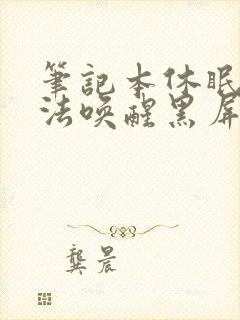 筆記本休眠
法喚醒黑屏
龔晨